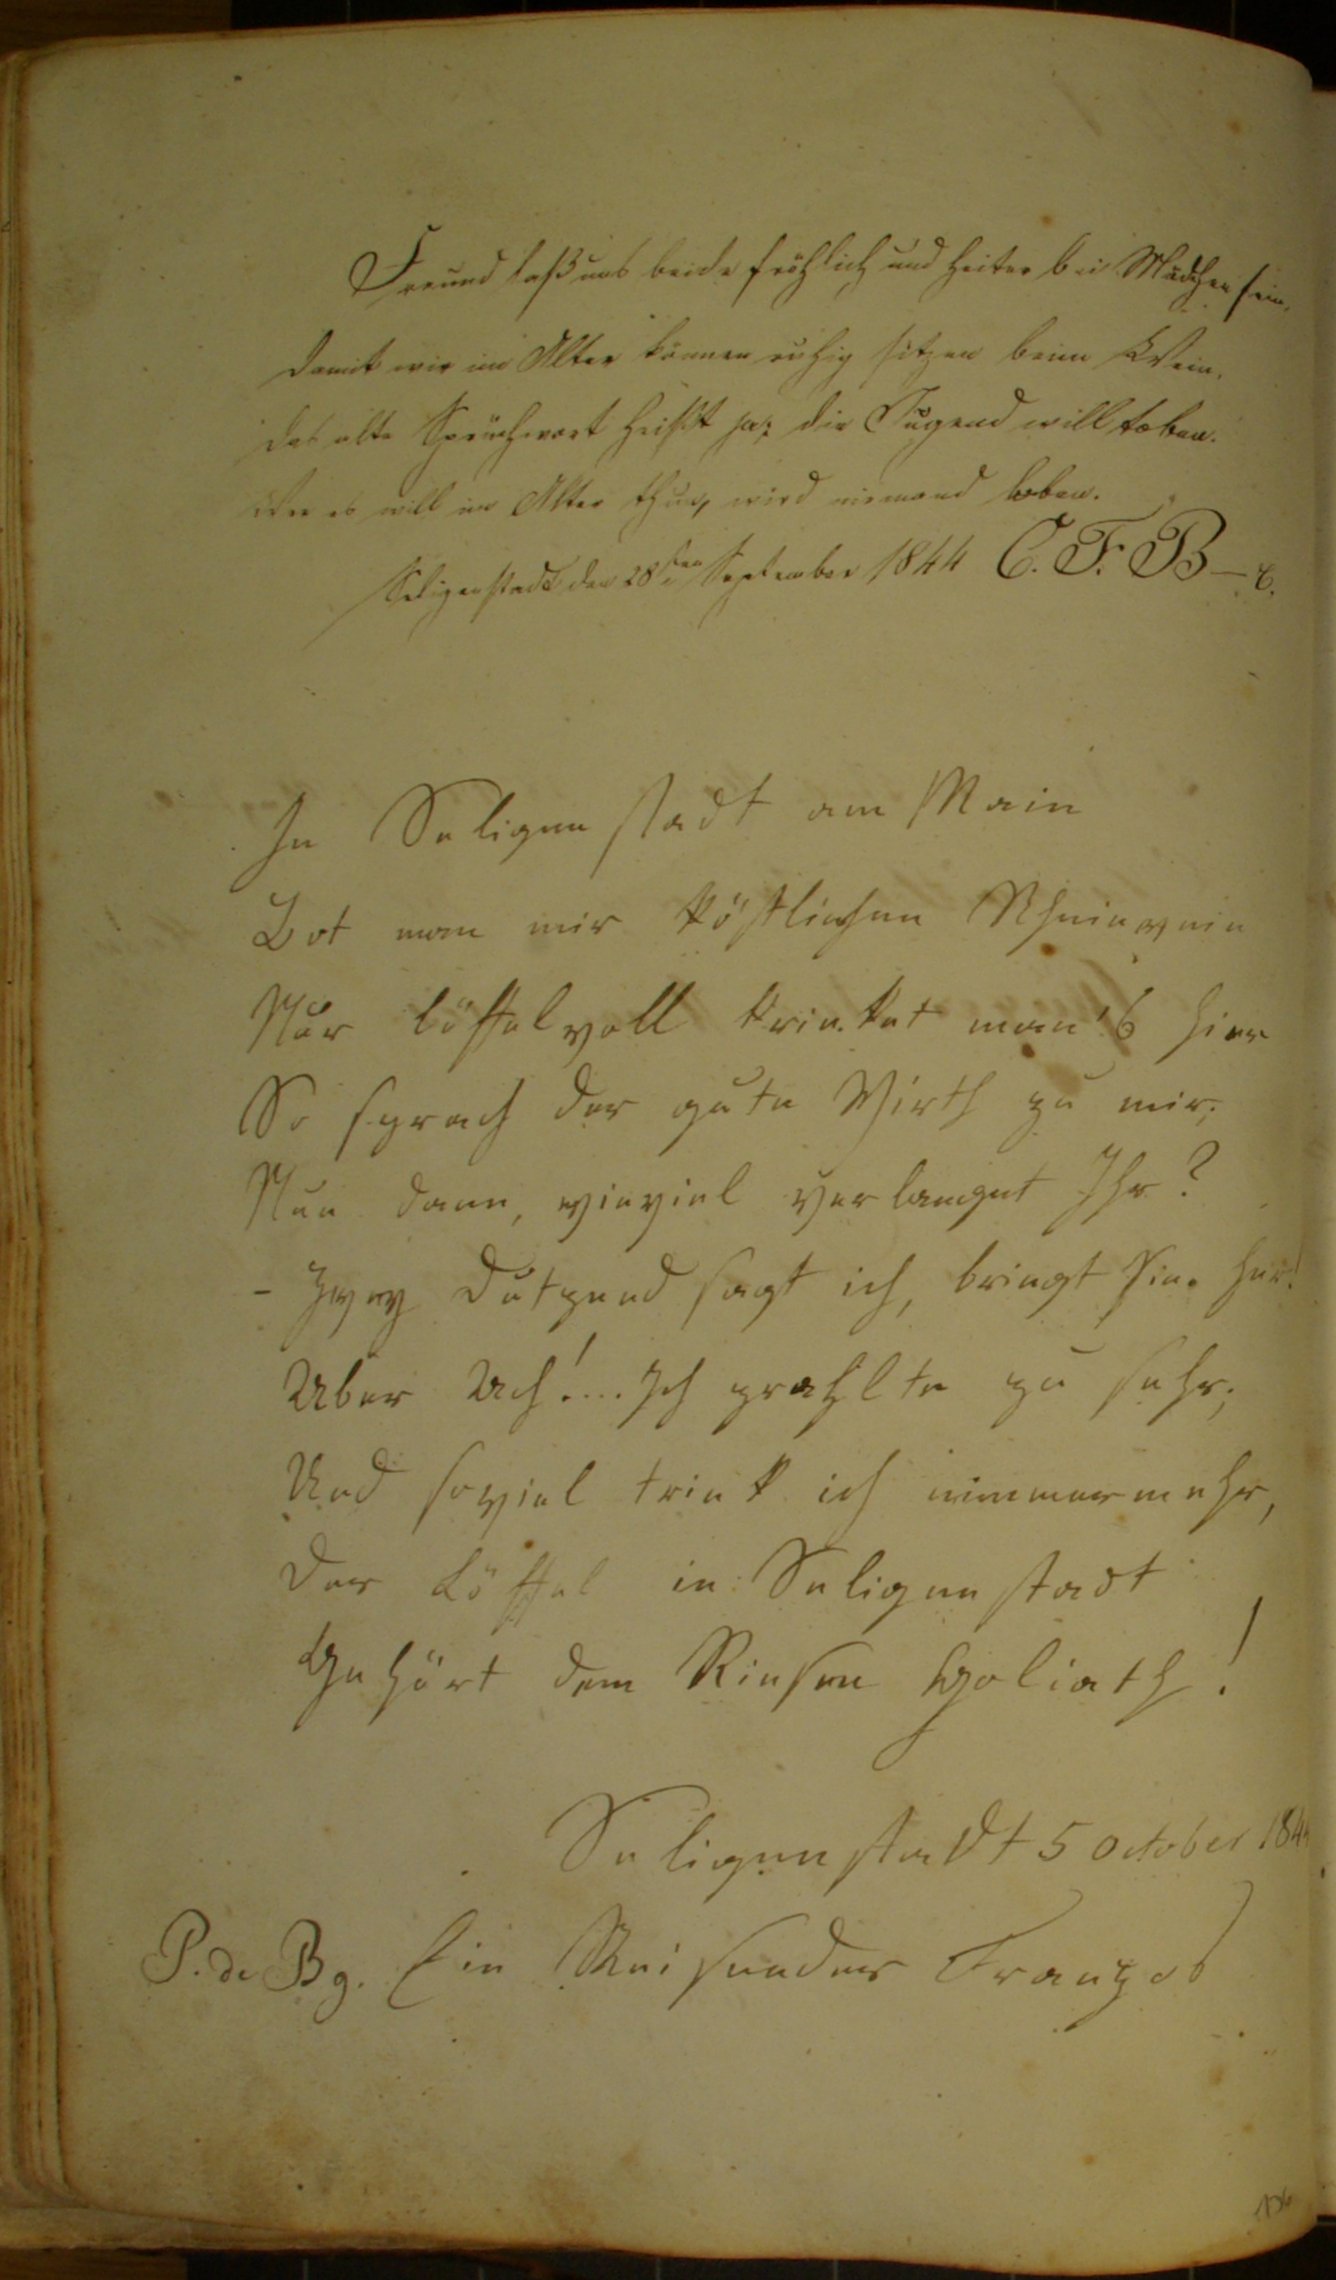 Freund laß uns beide fröhlich und heiter bei Mädchen sein,
damit wir im Alter können ruhig sitzen beim Wein.
das alte Sprüchwort heißt ja: die Jugend will toben.
Wer es will im Alter thun, wird niemand loben.
Seligenstadt den 28ten September 1844 C. F. B–
In Seligenstadt am Main
Bot man mir köstlichen Rheinwein
Nur löffelvoll trinket man's hier
So sprach der gute Wirth zu mir;
Nun dann, wieviel verlanget Ihr?
- Zwey Dutzend sagt ich, bringt sie her!
Aber Ach!.... Ich prahlte zu sehr;
Und soviel trink ich nimmermehr,
Der Löffel in Seligenstadt
Gehört dem Riesen Goliath!
Seligenstadt 5 October 1844
P. de Bg. Ein Reisender Franzos